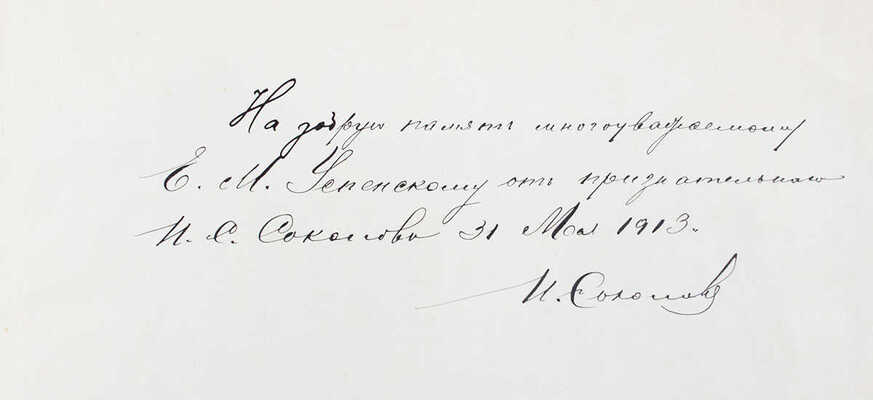 На добрую память многоуважаемому
Е. М. Успенскому отъ признательнаго
И. С. Соколова 31 Мая 1913.
И. Соколовъ